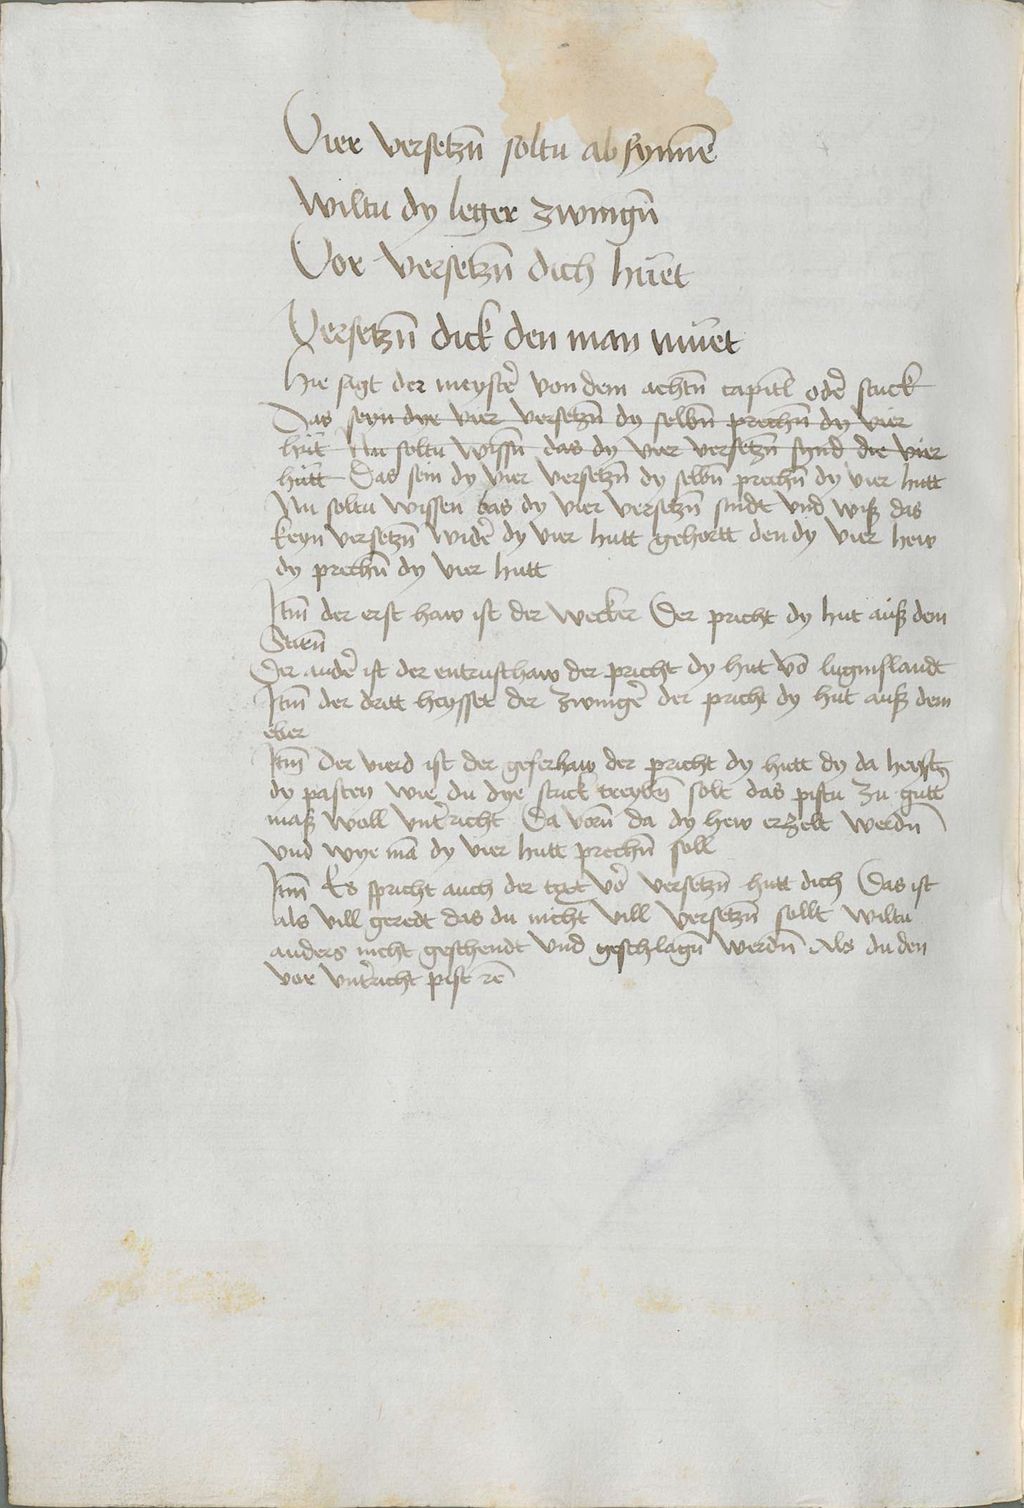 Vier versetzn̄ soltu ab synnē
Wiltu dy leger zwingn̄
Vor versetzn̄ dich hüet
Versetzn̄ dick den man müet
Hie sagt der meystē von dem achtn̄ capitl odē stuck
Das seyn dye vier versetzn̄ dy selbn̄ prechn̄ dy vier
hüt Nu soltu wissn̄ das dy vier versetzn̄ synd die vier
hütt Das sein dy vier versetzn̄ dy selbn̄ prechn̄ dy vier hutt
Nu soltu wissen das dy vier versetzn̄ sindt vnd wiß das
keyn versetzn̄ widē dy vier hutt gehortt den dy vier hew
dy prechn̄ dy vier hutt
Itm̄ der erst haw ist der wecker Der pricht dy hut auß dem
Der andē ist der entrusthaw der pricht dy hut vō luginslandt
Itm̄ der dritt heysset der zwingē der pricht dy hut auß dem
eber
Itm̄ Der vierd ist der geferhaw der pricht dy hutt dy da heyst
dy pastey wie du dye stuck treybn̄ solt das pistu zu gutt
maß woll vntricht Da vorn̄ da dy hew erzelt werdn̄
vnd wye mā dy vier hutt prechn̄ soll
Itm̄ Es spricht auch der text vō versetzn̄ hutt dich Das ist
als vill geredt das du nicht vill versetzn̄ sollt wiltu
anders nicht geschendt vnd geschlagn̄ werdn̄ Als du den
vor vntricht pist rē